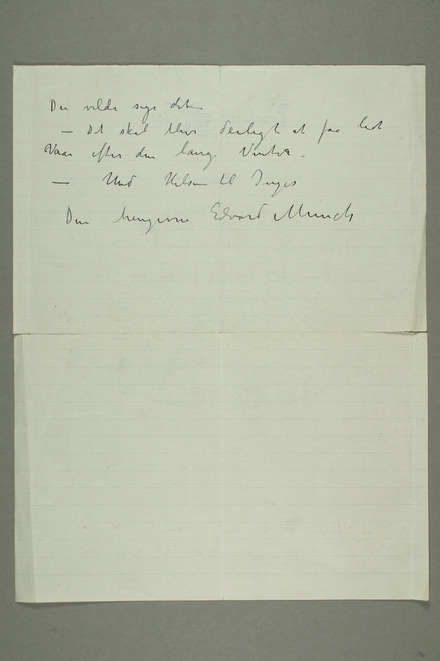 Du vilde sige det
— Det skal blive deiligt at faa lidt
Vaar efter den lange Vinter –
— Med Hilsen til Inger
Din hengivne Edvard Munch